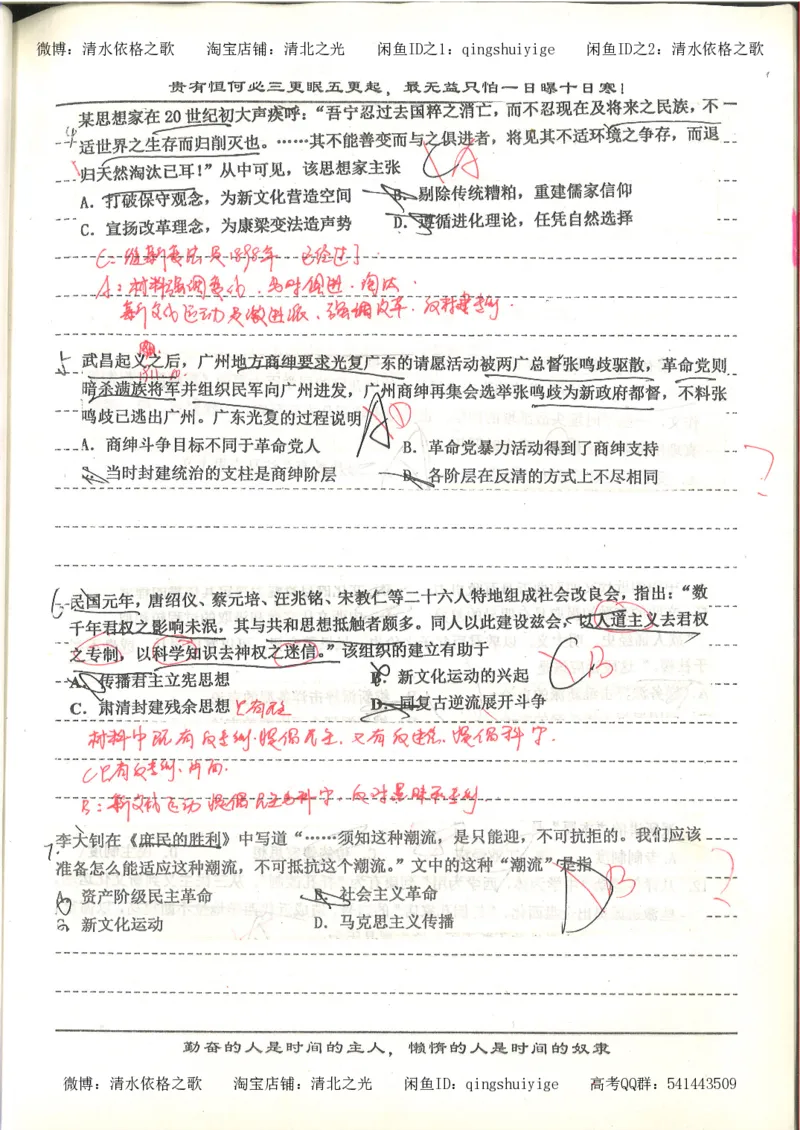 微博：清水依格之歌 淘宝店铺：清北之光 闲鱼ID之1：qingshuiyige 闲鱼ID之2：清水依格之歌
贵有恒何必三更眠五更起，最无益只怕一日曝十日寒！
某思想家在20世纪初大声疾呼：“吾宁忍过去国粹之消亡，而不忍现在及将来之民族，不
适世界之生存而归削灭也。……其不能善变而与之俱进者，将见其不适环境之争存，而退
归天然淘汰已耳！”从中可见，该思想家主张
C A
A．打破保守观念，为新文化营造空间 B．剔除传统糟粕，重建儒家信仰
C．宣扬改革理念，为康梁变法造声势 D．遵循进化理论，任凭自然选择
C：维新变法是1898年 已经过了
A：材料强调变化、与时俱进、淘汰．
新文化运动是激进派、强调改革、反封建专制．
5 武昌起义之后，广州地方商绅要求光复广东的请愿活动被两广总督张鸣歧驱散，革命党则
暗杀满族将军并组织民军向广州进发，广州商绅再集会选举张鸣歧为新政府都督，不料张
鸣歧已逃出广州。广东光复的过程说明 A D
A．商绅斗争目标不同于革命党人 B．革命党暴力活动得到了商绅支持
C．当时封建统治的支柱是商绅阶层 D．各阶层在反清的方式上不尽相同
?
6 民国元年，唐绍仪、蔡元培、汪兆铭、宋教仁等二十六人特地组成社会改良会，指出：“数
千年君权之影响未泯，其与共和思想抵触者颇多。同人以此建设兹会，以人道主义去君权
之专制，以科学知识去神权之迷信。”该组织的建立有助于 C B
A．传播君主立宪思想 B．新文化运动的兴起
C．肃清封建残余思想 只有民主 D．回复古逆流展开斗争
材料中既有反专制、提倡民主，又有反迷信、提倡科学．
C只有反专制，片面．
B：新文化运动提倡民主与科学，反对愚昧和专制
7. 李大钊在《庶民的胜利》中写道“……须知这种潮流，是只能迎，不可抗拒的。我们应该
准备怎么能适应这种潮流，不可抵抗这个潮流。”文中的这种“潮流”是指 D B
A 资产阶级民主革命 B．社会主义革命
C 新文化运动 D．马克思主义传播
?
勤奋的人是时间的主人，懒惰的人是时间的奴隶
微博：清水依格之歌 淘宝店铺：清北之光 闲鱼ID：qingshuiyige 高考QQ群：541443509